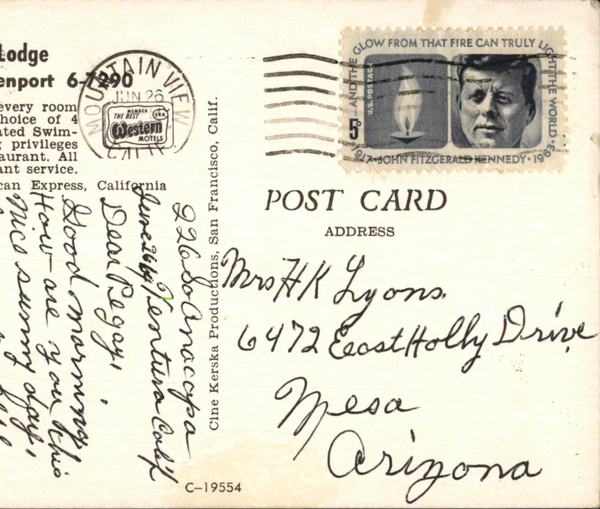 Lodge
enport 6-7290
every room
hoice of 4
ated Swim-
privileges
taurant. All
ant service.
can Express, California
MOUNTAIN VIEW
JUN 26
CALIF.
MEMBER
THE BEST
Western
MOTELS
AND THE GLOW FROM THAT FIRE CAN TRULY LIGHT THE WORLD
U.S. POSTAGE
5¢
1917 · JOHN FITZGERALD KENNEDY · 1963
POST CARD
ADDRESS
Mrs H K Lyons.
6472 East Holly Drive
Mesa
Arizona
Cine Kerska Productions, San Francisco, Calif.
226 So Anacapa
June 26 64 Ventura Calif
Dear Pegay,
Good morning,
How are you this
nice sunny day,
C-19554